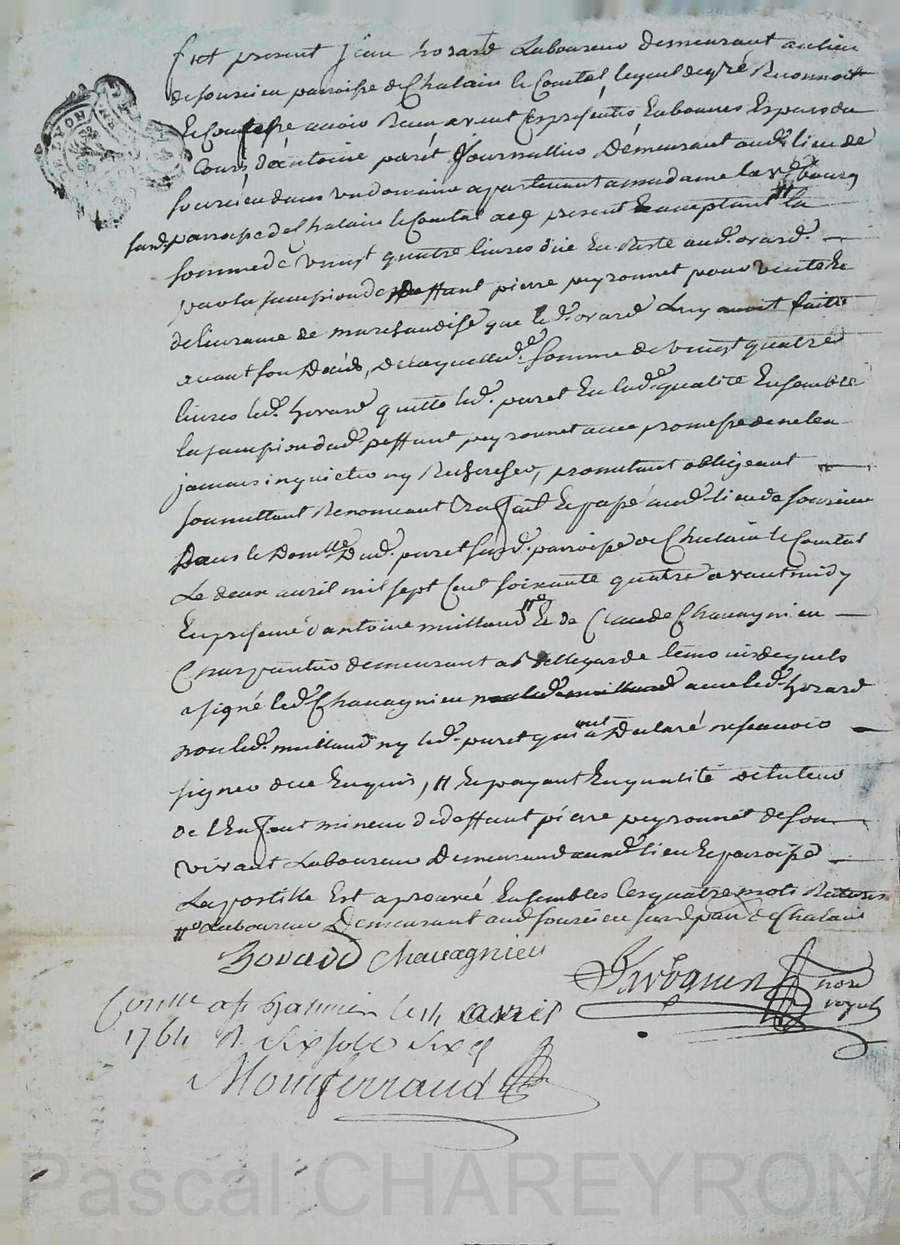 fut present jean horard Laboureur demeurant au lieu
de sourcieu parroisse de Chalain le Comtal lequel de gré Reconnoit
Et Confesse avoir Reçu avant Ces présentes En bonnes Especes du
Cours d'antoine paret journallier Démeurant aud. lieu de
sourcieu dans un domaine apartenant a madame la
parroisse de Chalain le Comtal acq present Et acceptant // la
somme de vingt quatre livres düe En Reste aud. orard.
par la sucession de deffunt pierre peyronnet pour vente Et
delivrance de marchandise que led. orard Luy avoit faitte
avant son Décés, De laquelle d. somme de vingt quatre
livres led. horard quitte led. paret En lad. qualité Ensemble
la sucession dud. deffunt peyronnet avec promesse de ne les
jamais inquietter ny Rechercher, promettant obligeant
soumettant Renonceant Fait Et passé aud. lieu de sourcieu
Dans le Domlle Dud. paret susd. parroisse de Chalain le Comtal
Le deux avril mil sept Cent soixante quatre avant midy
En presence d'antoine millaud // Et de Claude Chavagnieu
Charpantier demeurant a Bellegarde temoins desquels
a signé led. Chavagnieu avec led. horard
non led. millaud ny led. paret qui ont Déclaré ne scavoir
signer de ce Enquis, // Et payant En qualité de tuteur
de l'Enfant mineur de deffunt pierre peyronnet de son
vivant Laboureur Demeurant aud. lieu Et parroisse
La postille Est aprouvée Ensembles les quatre mots Raturés
// Laboureur Demeurant aud. sourcieu susd. par. de Chalain
horard Chavagnieu
Conlle a st galmier le 14 avril
1764 R six sols six d
Montferraud
Pascal CHAREYRON